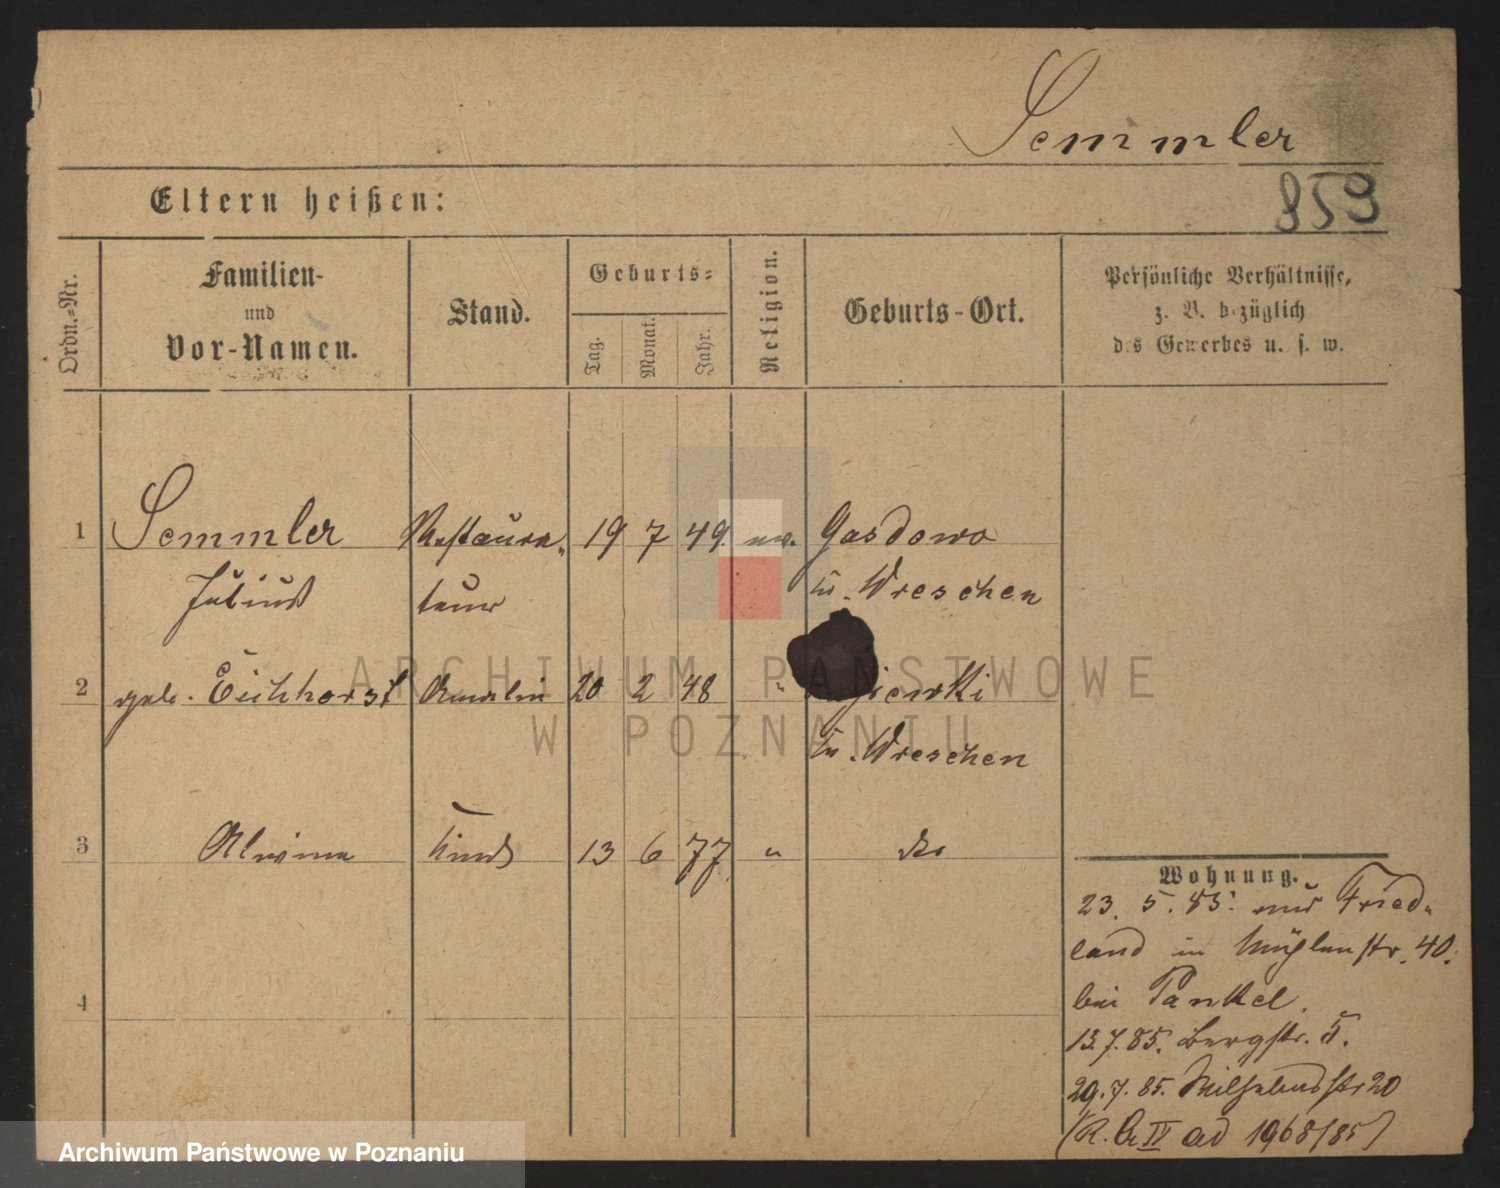 Semmler
853
Eltern heißen:
Ordn.-Nr.
Familien-
und
Vor-Namen.
Stand.
Geburts-
Tag.
Monat.
Jahr.
Religion.
Geburts-Ort.
Persönliche Verhältnisse,
z. B. bezüglich
des Gewerbes u. s. w.
1 Semmler Restaura- 19 7 49 ev. Gasdowo
Julius teur Kr. Wreschen
2 geb. Eichhorst Amalie 20 2 48 "
Kr. Wreschen
3 Alwine Kind 13 6 77 " do
4
Wohnung.
23. 5. 85. aus Fried-
land in Mühlenstr. 40.
bei Pankel.
13.7.85. Bergstr. 5.
29.7.85. Wilhelmsstr 20
(R. A IV ad 1968/85)
ARCHIWUM PAŃSTWOWE
W POZNANIU
Archiwum Państwowe w Poznaniu